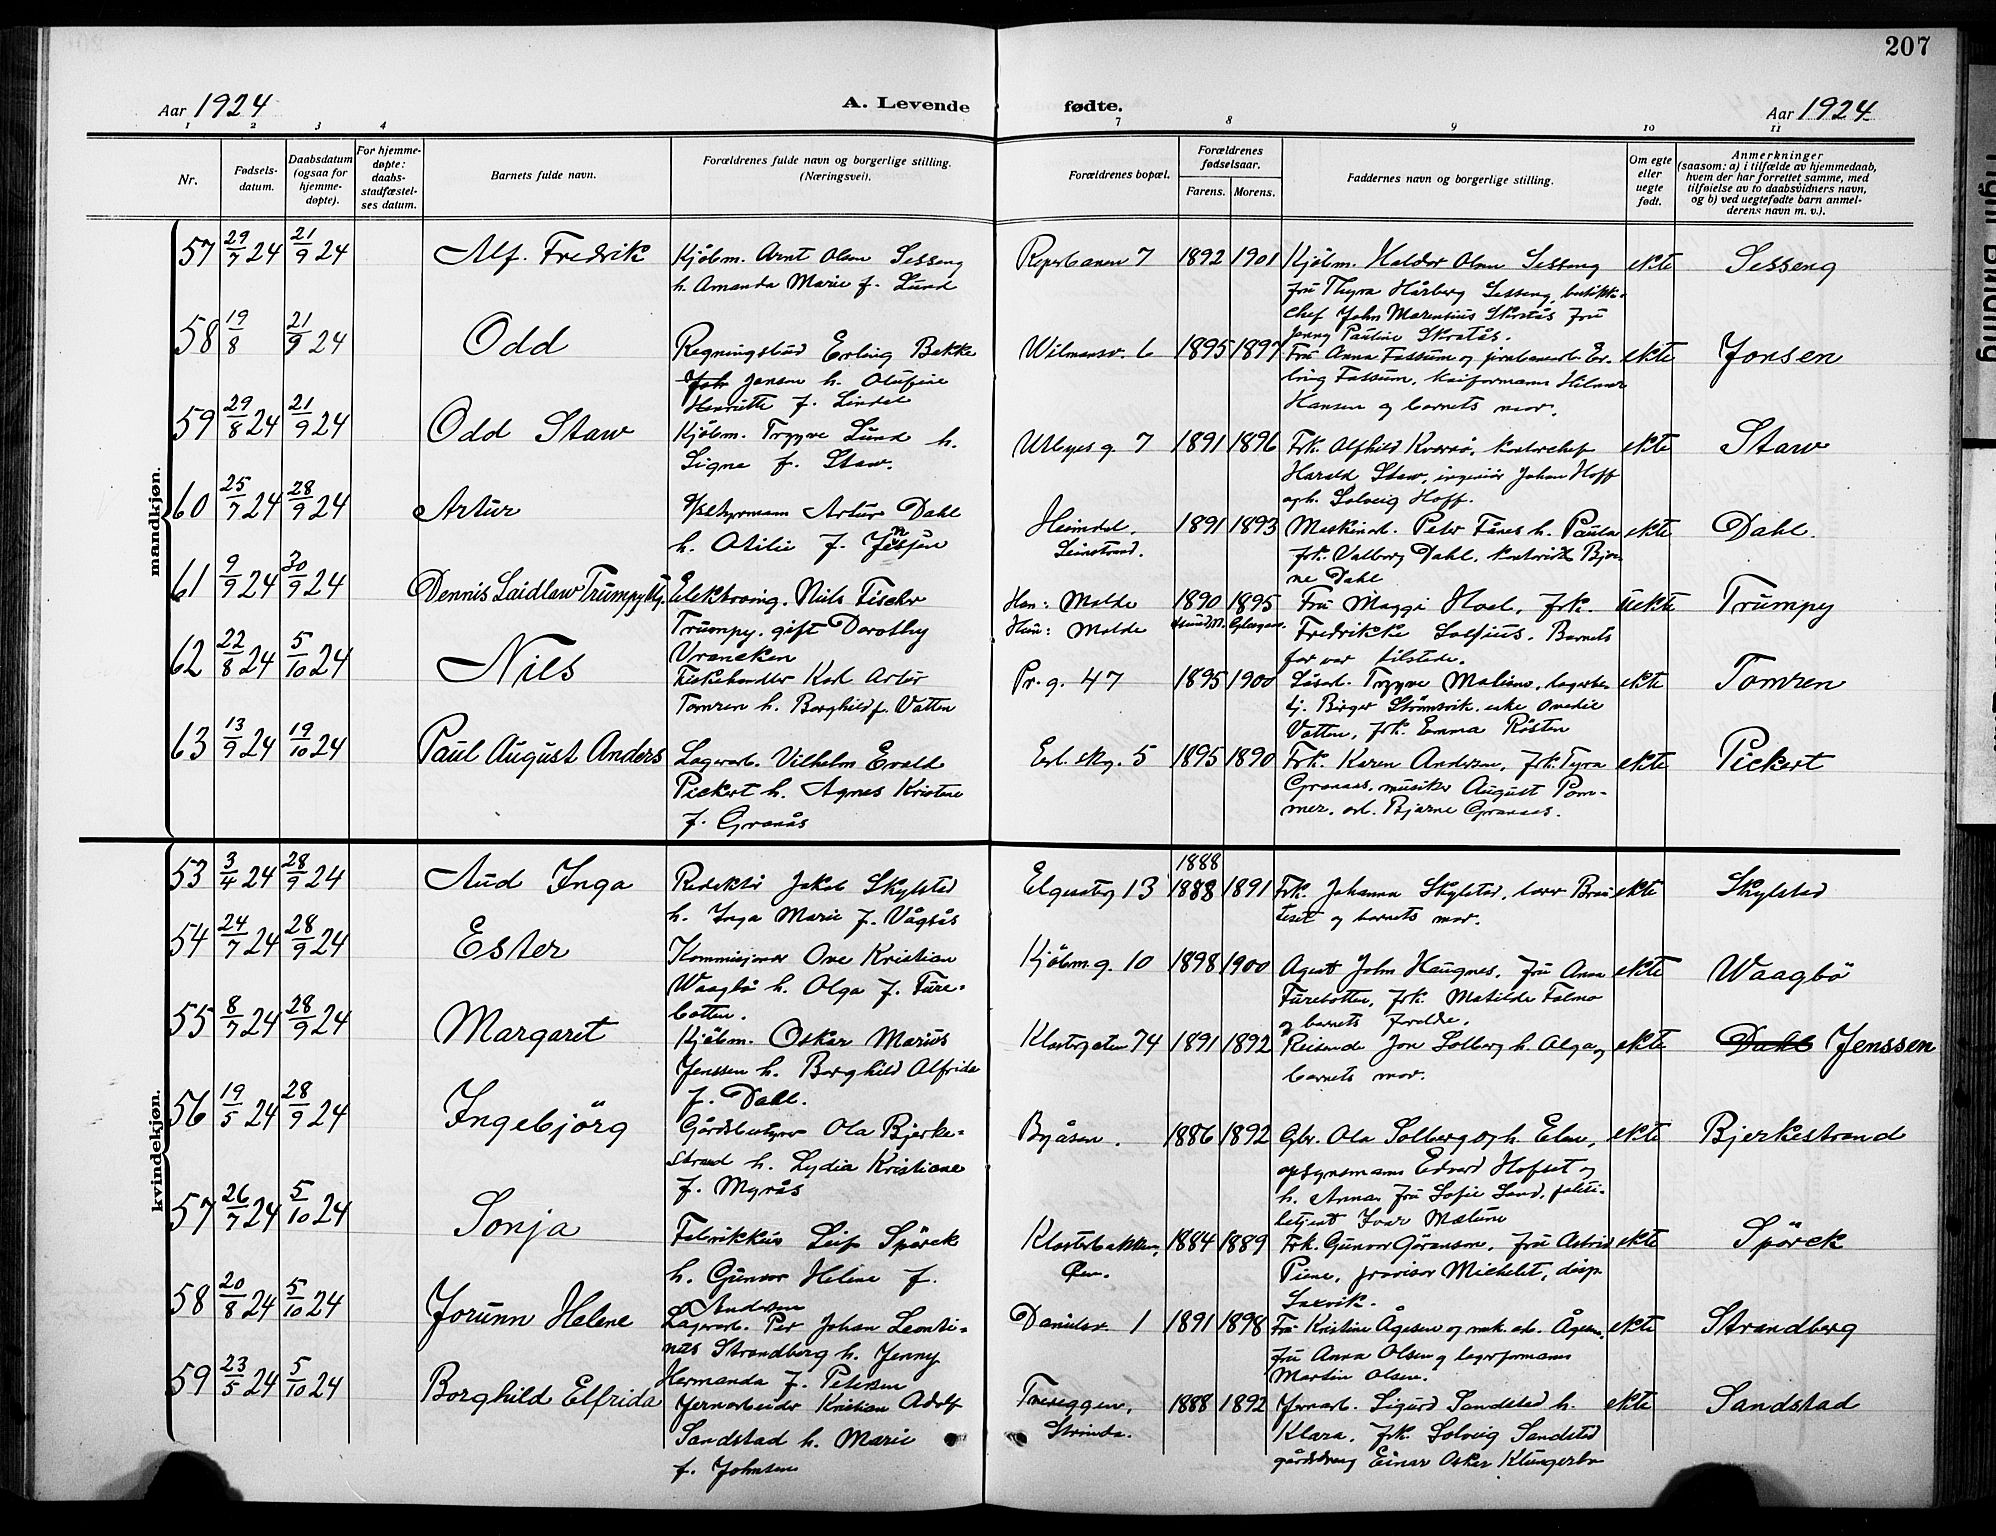 207
Aar 1924
A. Levende fødte.
Aar 1924
1 2 3 4 7 8 9 10 11
Nr.
Fødsels-
datum.
Daabsdatum
(ogsaa for
hjemme-
døpte).
For hjemme-
døpte:
daabs-
stadfæstel-
ses datum.
Barnets fulde navn.
Forældrenes fulde navn og borgerlige stilling.
(Næringsvei).
Forældrenes bopæl.
Forældrenes
fødselsaar.
Farens. Morens.
Faddernes navn og borgerlige stilling.
Om egte
eller
uegte
født.
Anmerkninger
(saasom: a) i tilfælde av hjemmedaab,
hvem der har forrettet samme, med
tilføielse av to daabsvidners navn,
og b) ved uegtefødte barn anmel-
derens navn m. v.).
mandkjøn.
57 29/7 24 21/9 24 Alf. Fredrik Kjøbm. Arnt Olsen Sesseng Reperbanen 7 1892 1901 Kjøbm. Haldor Olsen Sesseng ekte Sesseng
h. Amanda Marie f. Lund
fru Thyra Hårberg Sesseng,
chef John Marentius Skrstås fru
Jenny Pauline Skrstås.
58 19/8 21/9 24 Odd Regningsbud Erling Bakke Wilmansv. 6 1895 1897 Fru Anna Fossum og ekte Jonsen
Jonsen h. Olufine
ling Fossum, Hilmar
Henriette f. Lindal
Hansen og barnets mor.
59 29/8 24 21/9 24 Odd Staw Kjøbm. Trygve Lund h. Utbyes g. 7 1891 1896 Frk. Alfhild kontorchef ekte Staw
Signe f. Staw.
Harald Staw, ingeniør Johan Hoff
og h. Solveig Hoff.
60 25/7 24 28/9 24 Artur Artur Dahl Heimdal, 1891 1893 Maskinarb. Peter Fånes h. Paula ekte Dahl.
h. Otilie f.
Leinstrand.
frk. Valborg Dahl, kontorist Bjar-
ne Dahl
61 9/9 24 30/9 24 Dennis Laidlaw Trumpy Elektroing. Niels Fischer Han: Molde 1890 1895 Fru Maggi Hoel, frk. uekte Trumpy
Trumpy. gift Dorothy
Hun: Molde
Fredrikke Barnets
Vrancken
far var tilstede.
62 22/8 24 5/10 24 Nils Fiskehandler Karl Artur Pr. g. 47 1895 1900 Trygve ekte Tomren
Tomren h. Borghild f. Vatten
Birger Strømsvik,
Vatten, frk. Emma Røsten
63 13/9 24 19/10 24 Paul August Anders Lagerarb. Vilhelm Evald Erl. skg. 5 1895 1890 Frk. Karen Andersen, frk. Tyra ekte Pickert
Pickert h. Agnes Kristine
Granaas, musiker August Pom-
f. Granås
mer, arb. Bjarne Granaas.
kvindekjøn.
53 3/4 24 28/9 24 Aud Inga Redaktør Jakob Skylstad Elgeseterg 13 1888 1888 1891 Frk. Johanna Skylstad, ekte Skylstad
h. Inga Marie f. Vågsås
og barnets mor.
54 24/7 24 28/9 24 Ester Kommisjonær Ove Kristian Kjøbm.g. 10 1898 1900 Agent John Haugnes, fru Anna ekte Waagbø
Waagbø h. Olga f. Ture-
Turebotten, frk. Matilde
botten.
og barnets
55 8/7 24 28/9 24 Margaret Kjøbm. Oskar Marius Klostergaten 74 1891 1892 Reisende Jon Solberg h. Olga og ekte Dahl Jenssen
Jenssen h. Borghild Alfrida
barnets mor.
f. Dahl.
56 19/5 24 28/9 24 Ingebjörg Gårdbestyrer Ola Bjerke- Byåsen. 1886 1892 Gbr. Ola Solberg og h. ekte Bjerkestrand
strand h. Lydia Kristiane
opsynsmann Edvard Hofset og
f. Myrås
h. Anna. fru Sofie politi-
betjent Ivar Mælum
57 26/7 24 5/10 24 Sonja Fabrikkeier Leif Spörck Klosterbakken, 1884 1889 Frk. Gunvor Göranson, fru Astrid ekte Spörck
h. Gunvor Helene f.
Piene, provisor Michelet, disp.
Andersen
Saxvik.
58 20/8 24 5/10 24 Jorunn Helene Lagerarb. Per Johan Leonti- Danielsv. 1 1891 1898 Fru Kristine Ågesen og mek. arb. Ågesen, ekte Strandberg
nus Strandberg h. Jenny
fru Anna Olsen og lagerformann
Hermanda f. Petersen
Martin Olsen.
59 23/5 24 5/10 24 Borghild Elfrida Jernarbeider Kristian Adolf Tneseggen, 1888 1892 Jernarb. Sigurd Sandstad h. ekte Sandstad
Sandstad h. Marie
Strinda.
Klara, frk. Solveig Sandstad
f. Johnsen
gårdsdreng Einar Oskar Klungerbo